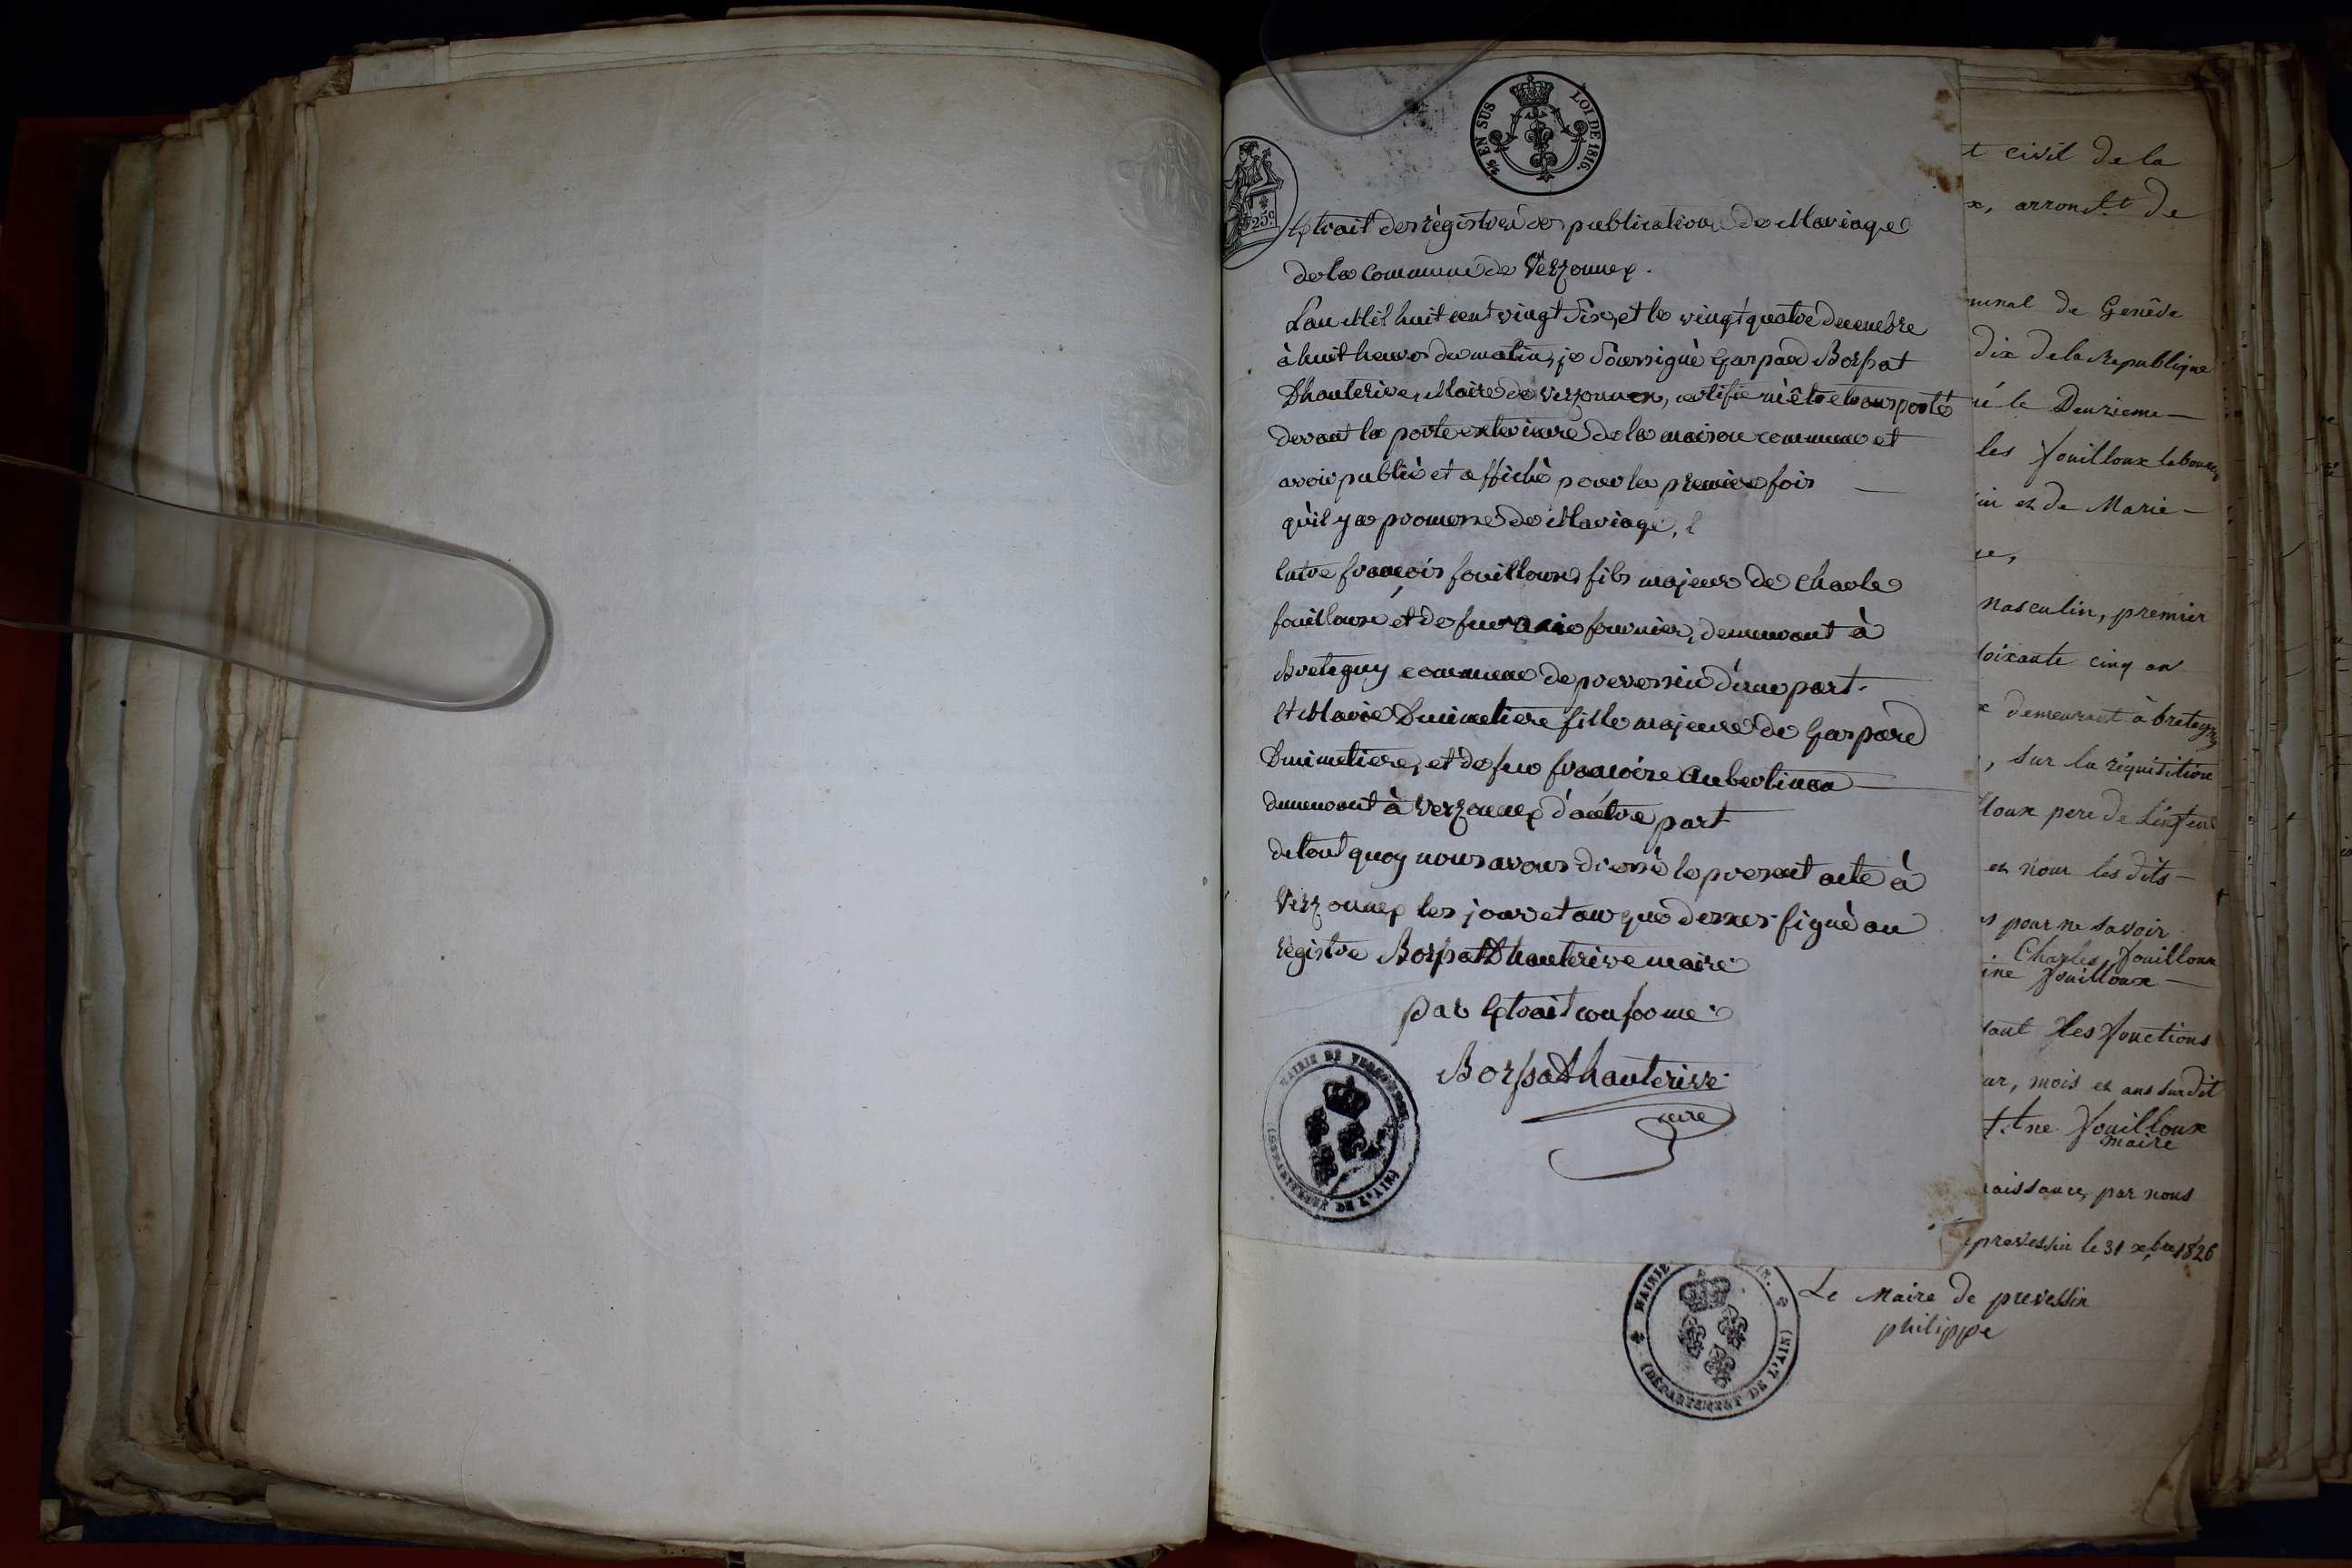 2/5 EN SUS LOI DE 1816.
25c
Extrait des règistres des publications de Mariage
de la Commune de Verzonnex.
L'an Mil huit cent vingt Six, et le vingt quatre decembre
à huit heures du matin, je Soussigné Gaspard Borssat
Dhauterive, Maire de Verzonnex, certifie m'être transporté
devant la porte exterieure de la maison commune et
avoir publié et affiché pour la premiere fois
qu'il y a promesse de Mariage,
Entre françois fouilloux, fils majeur de Charle
fouilloux, et de feu Marie fournier, demeurant à
Bretegny commune de prevessin d'une part.
Et Marie Dunimetiere fille majeure de Gaspard
Dunimetiere, et de feu françoise
demeurant à Verzonnex d'autre part
de tout quoy nous avons dressé le present acte à
Verzonnex les jour et an que dessus. signé au
règistre Borssat Dhauterive maire
par Extrait conforme
Borssat Dhauterive
maire
MAIRIE DE
t civil de la
x, arrond.t de
minal de Genève
dix de la Republique
né le Deuxieme
les fouilloux laboureur
in et de Marie
se,
masculin, premier
soixante cinq an
x demeurant à bretegny
, sur la réquisition
lloux pere de l'enfent
et nous les dits
s pour ne savoir
Charles fouilloux
ine fouilloux
sant les fonctions
ur, mois et ans surdit
t. ne fouilloux
maire
naissance, par nous
prevessin le 31 xbre 1826
Le Maire de prevessin
philippe
MAIRIE IN.
(DÉPARTEMENT DE L'AIN)